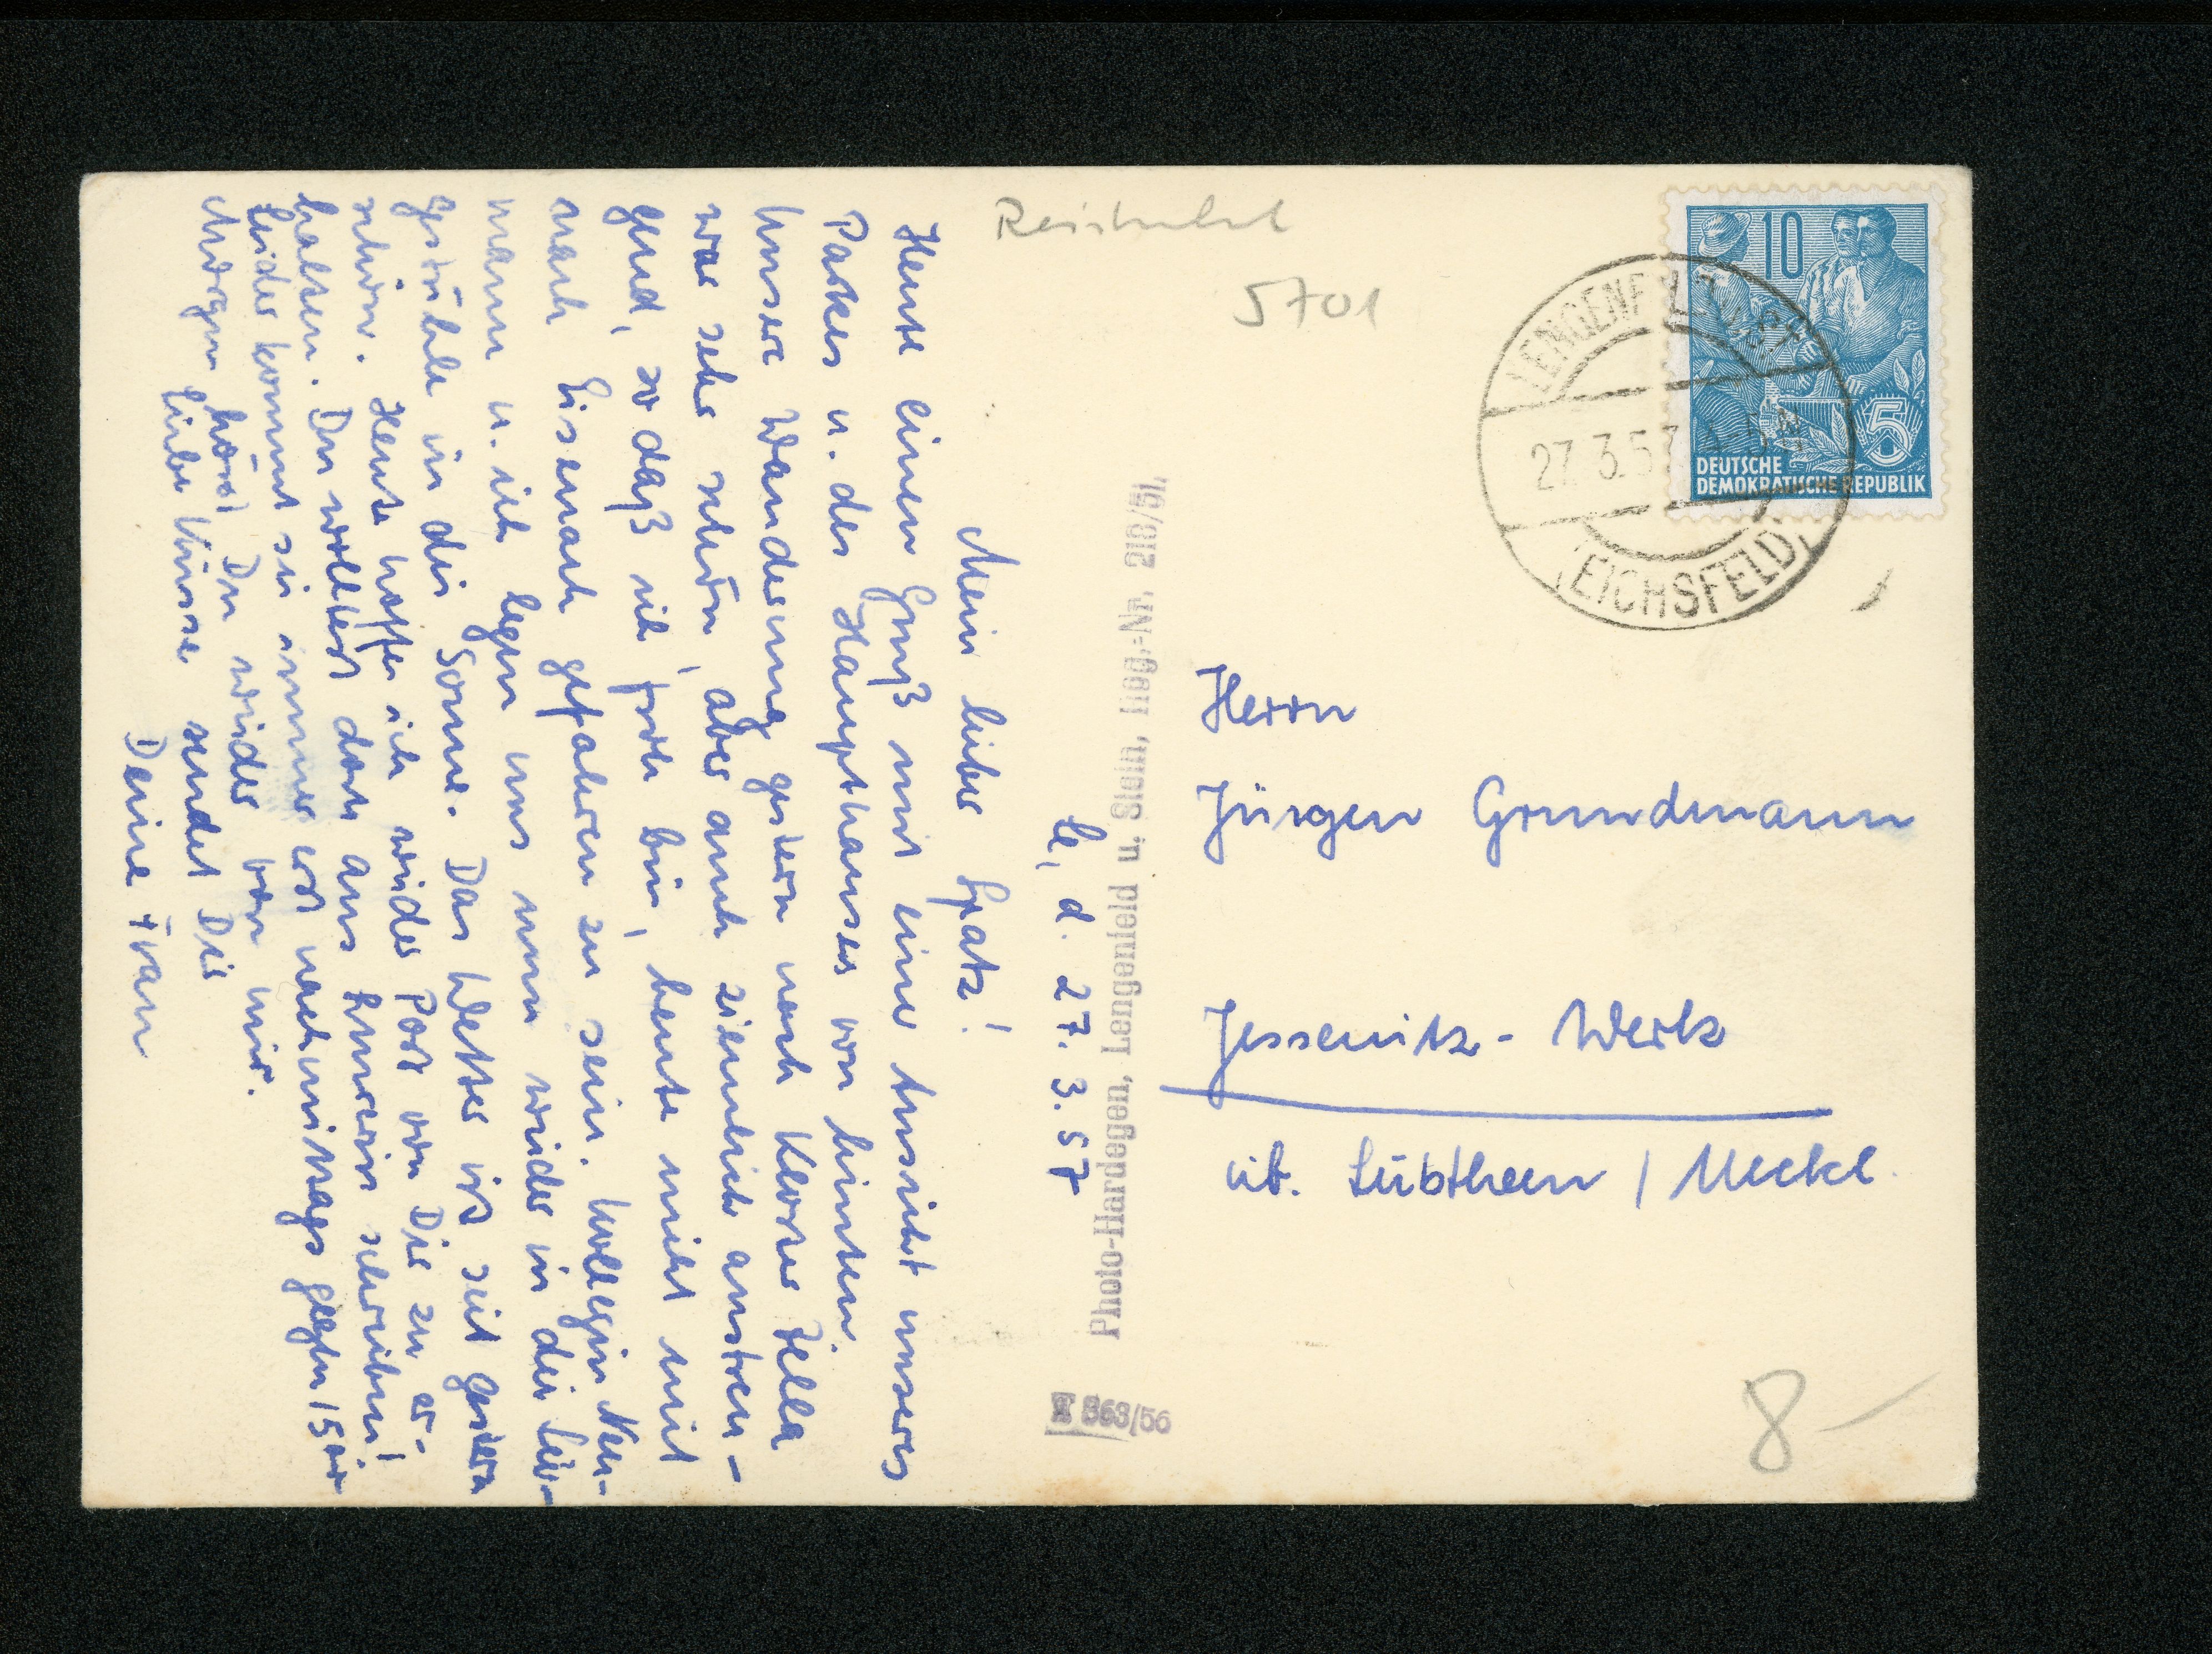 Le, d. 27. 3. 57
Mein lieber Spatz!
Heute einen Gruß mit einer Ansicht unseres
Parkes u. des Haupthauses von hinten.
Unsere Wanderung gestern nach Kloster Zella
war sehr schön, aber auch ziemlich anstren-
gend, so daß ich froh bin, heute nicht mit
nach Eisenach gefahren zu sein. Kollegin Neu-
mann u. ich legen uns nun wieder in die Lie-
gestühle in die Sonne. Das Wetter ist seit gestern
schön. Heute hoffe ich wieder Post von Dir zu er-
halten. Du wolltest doch aus schreiben!
Leider kommt sie immer erst nachmittags gegen 15 Uhr
Morgen hörst Du wieder von mir.
Liebe Küsse sendet Dir
Deine Frau
Photo-Hardegen, Lengenfeld u. Stein, Reg.-Nr. 218/51.
T 363/56
5701
10
5
DEUTSCHE
DEMOKRATISCHE REPUBLIK
LENGENFELD U. ST
27.3.57
(EICHSFELD)
Herrn
Jürgen Grundmann
Jessenitz-Werk
üb. Lübtheen / Meckl.
8